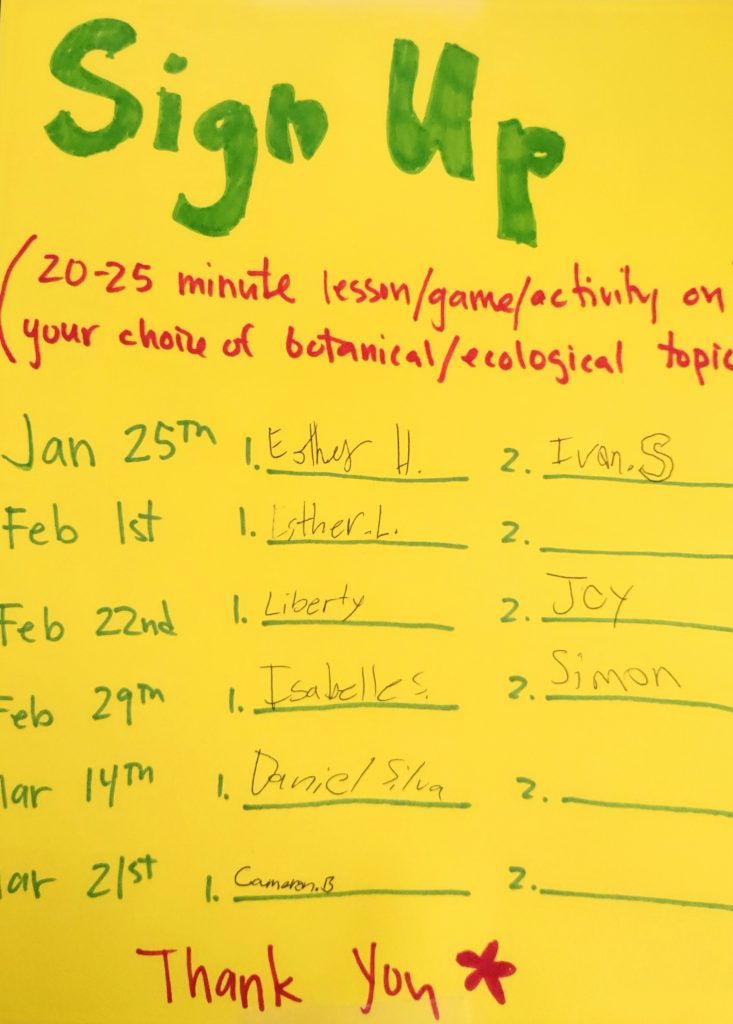 Sign Up
(20-25 minute lesson/game/activity on
your choice of botanical/ecological topic
Jan 25th 1. Esther H. 2. Ivan.S
Feb 1st 1. Esther.L. 2.
Feb 22nd 1. Liberty 2. Joy
Feb 29th 1. Isabelle S. 2. Simon
Mar 14th 1. Daniel Silva 2.
Mar 21st 1. Cameron.B 2.
Thank You *